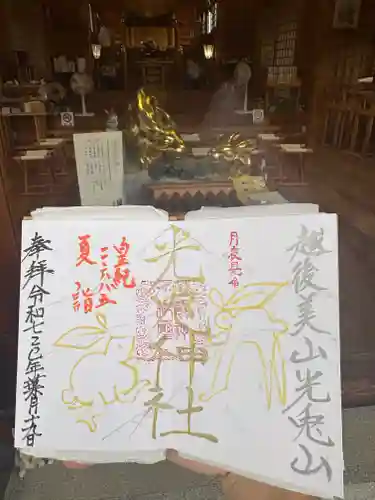 越後美山光兎山
光兎神社
皇紀
二六八五
夏詣
奉拝令和七乙巳年葉月十九日